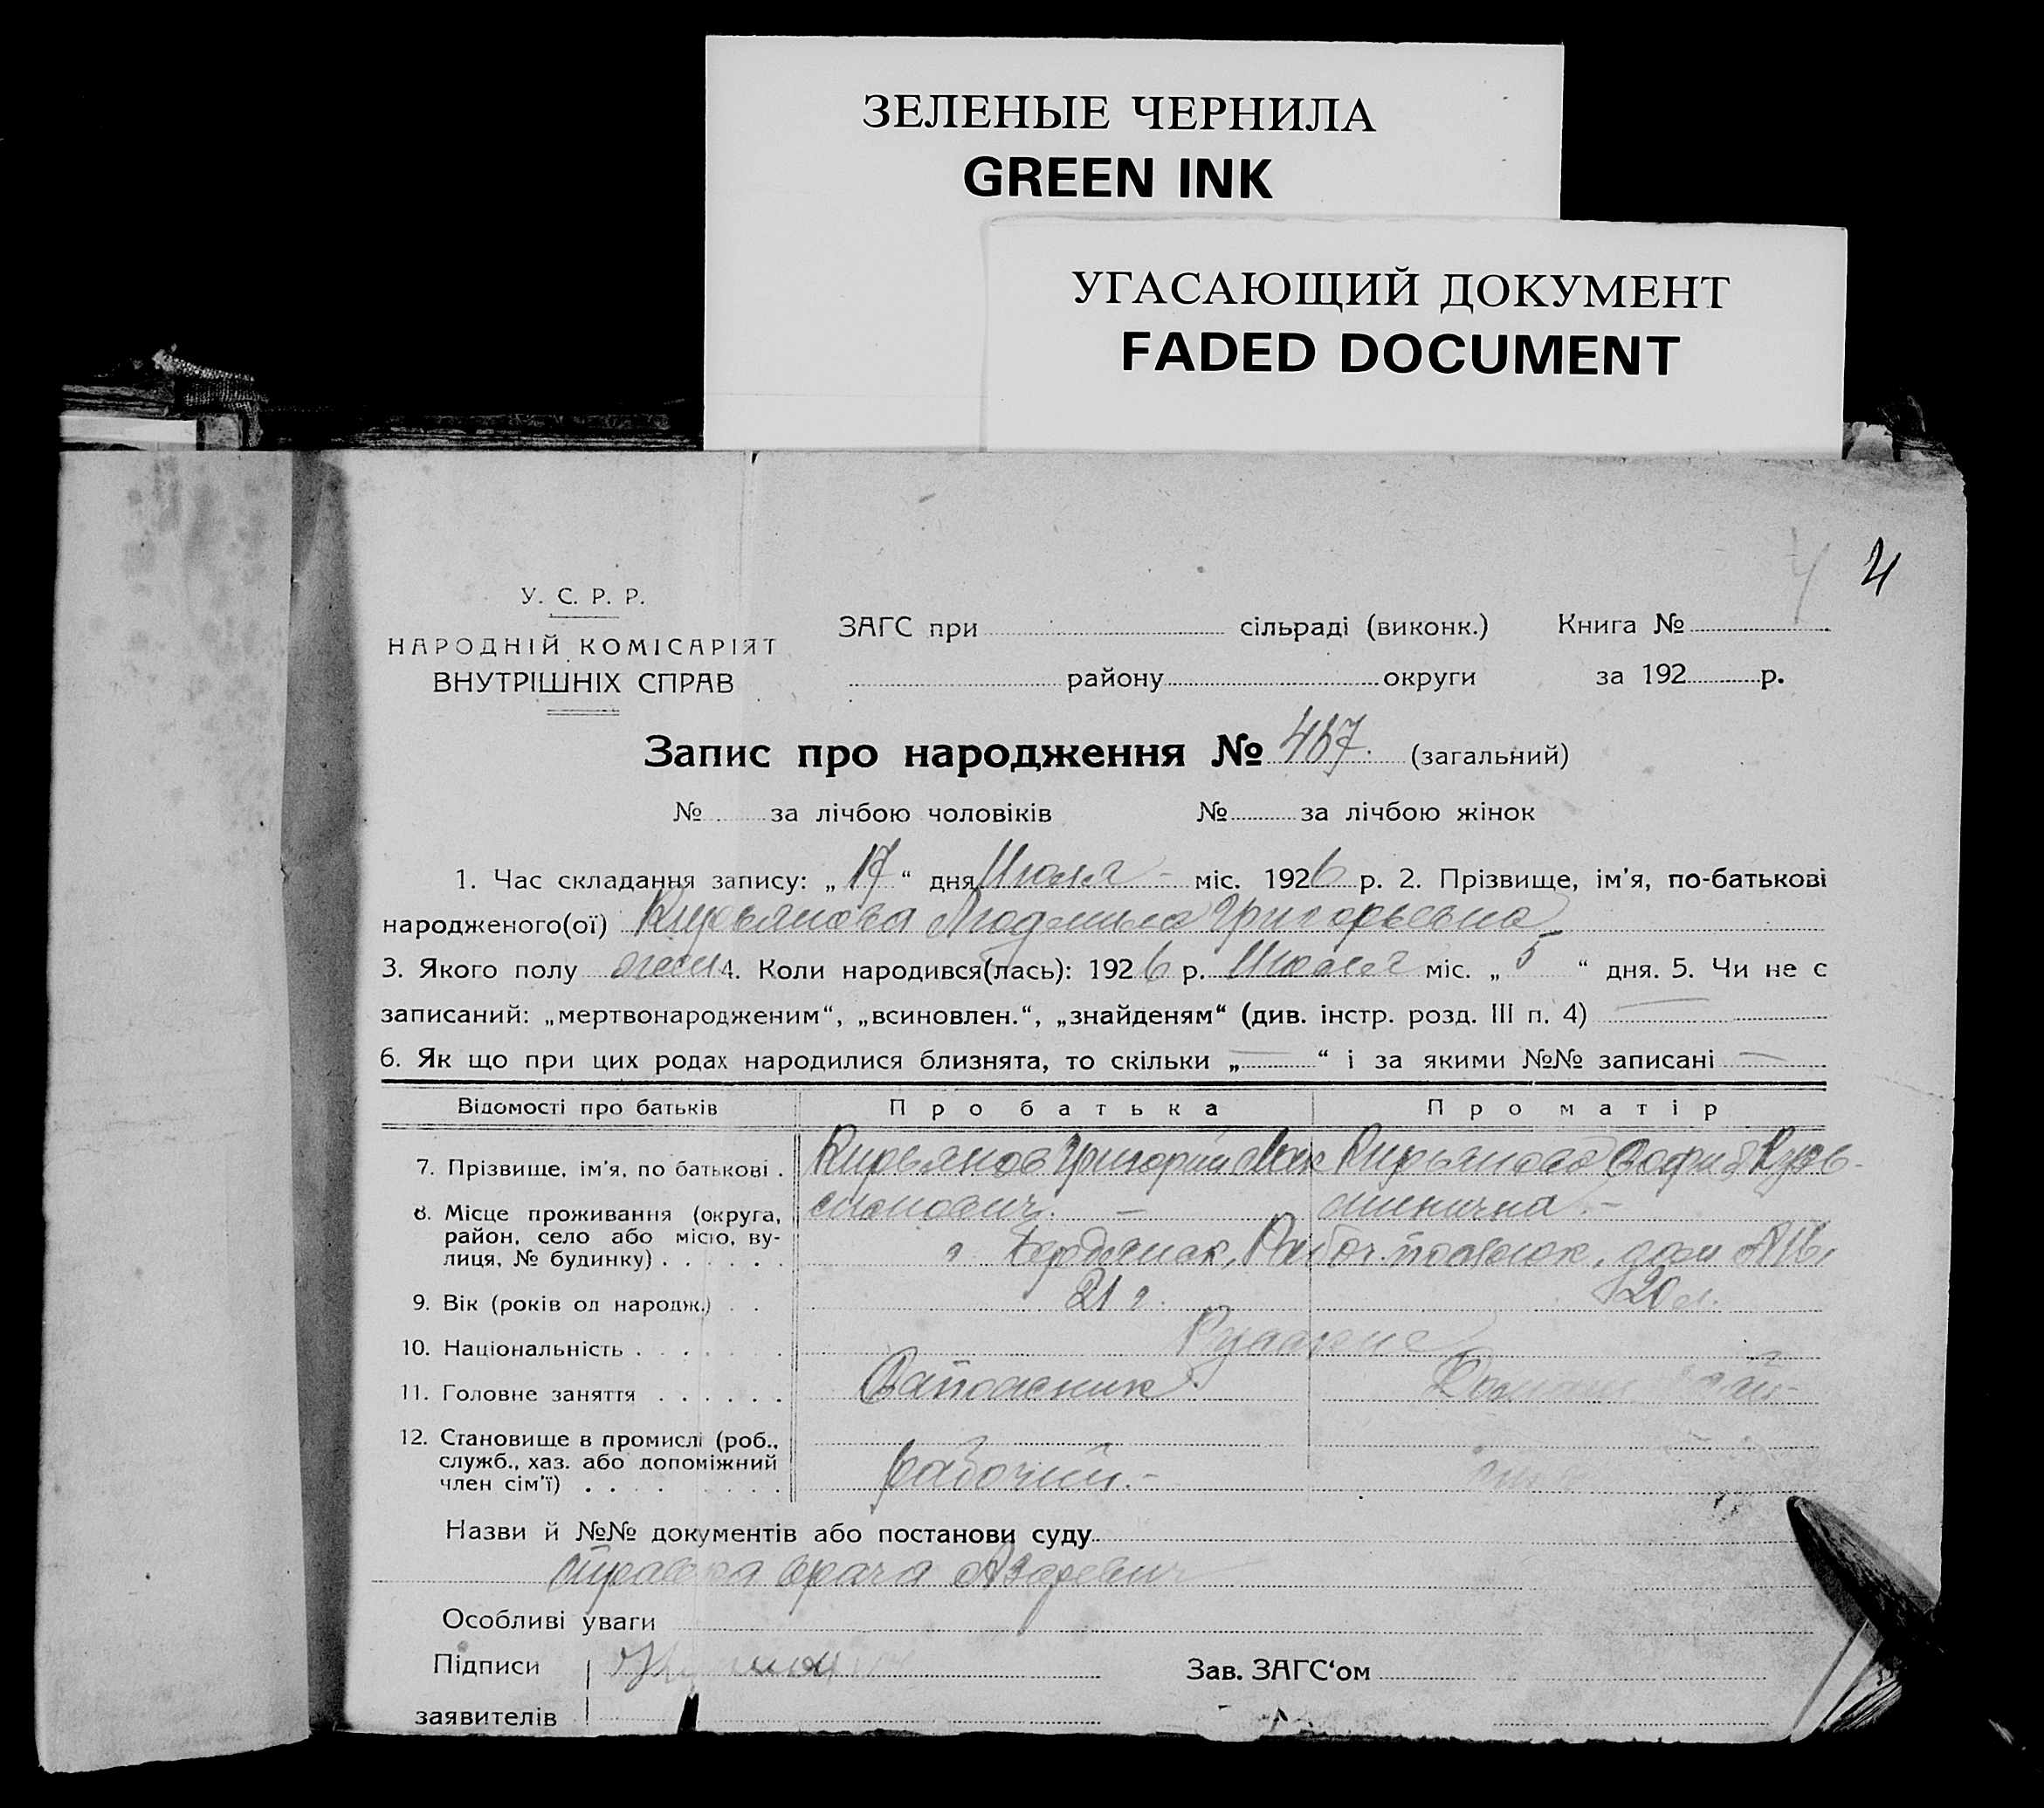 ЗЕЛЕНЫЕ ЧЕРНИЛА
GREEN INK
УГАСАЮЩИЙ ДОКУМЕНТ
FADED DOCUMENT
4
У. С. Р. Р.
НАРОДНІЙ КОМІСАРІЯТ
ВНУТРІШНІХ СПРАВ
ЗАГС при сільраді (виконк.) Книга №
району округи за 192 р.
Запис про народження № 467. (загальний)
№ за лічбою чоловіків № за лічбою жінок
1. Час складання запису: „17“ дня Июля - міс. 1926 р. 2. Прізвище, ім'я, по-батькові
народженого(ої) Кирьянова Людмила Григорьевна
3. Якого полу жен 4. Коли народився(лась): 1926 р. Июля міс. „5“ дня. 5. Чи не є
записаний: „мертвонародженим“, „всиновлен.“, „знайденям“ (див. інстр. розд. III п. 4) —
6. Як що при цих родах народилися близнята, то скільки „—“ і за якими №№ записані —
Відомості про батьків Про батька Про матір
7. Прізвище, ім'я, по батькові . Кирьянов Григорий Мак Кирьянова София Кузь-
симович. — минична. -
8. Місце проживання (округа,
район, село або місто, ву-
лиця, № будинку) . . . . . . г Бердянск, Рабоч. поселок, дом
9. Вік (років од народж.) . . 21 г. 20 л.
10. Національність . . . . . . Русские
11. Головне заняття . . . . . . Сапожник.
12. Становище в промислі (роб.,
служб., хаз. або допоміжний
член сім'ї) . . . . . . . . рабочий. -
Назви й №№ документів або постанови суду
справка врача Азаревич
Особливі уваги
Підписи
Зав. ЗАГС'ом
заявителів